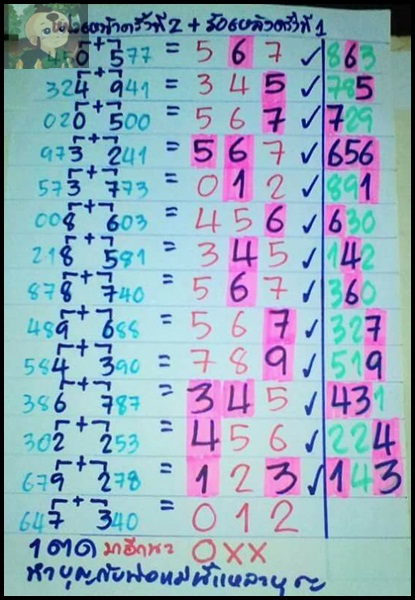 เลขหน้าครั้งที่ 2 + ร้อยหลังครั้งที่ 1
450 + 577 = 5 6 7 ✓ 863
324 + 941 = 3 4 5 ✓ 785
020 + 500 = 5 6 7 ✓ 729
973 + 241 = 5 6 7 ✓ 656
573 + 773 = 0 1 2 ✓ 891
008 + 603 = 4 5 6 ✓ 630
218 + 581 = 3 4 5 ✓ 142
878 + 740 = 5 6 7 ✓ 360
489 + 688 = 5 6 7 ✓ 327
584 + 390 = 7 8 9 ✓ 519
386 + 787 = 3 4 5 ✓ 431
302 + 253 = 4 5 6 ✓ 224
679 + 278 = 1 2 3 ✓ 143
647 + 340 = 0 1 2
0xx